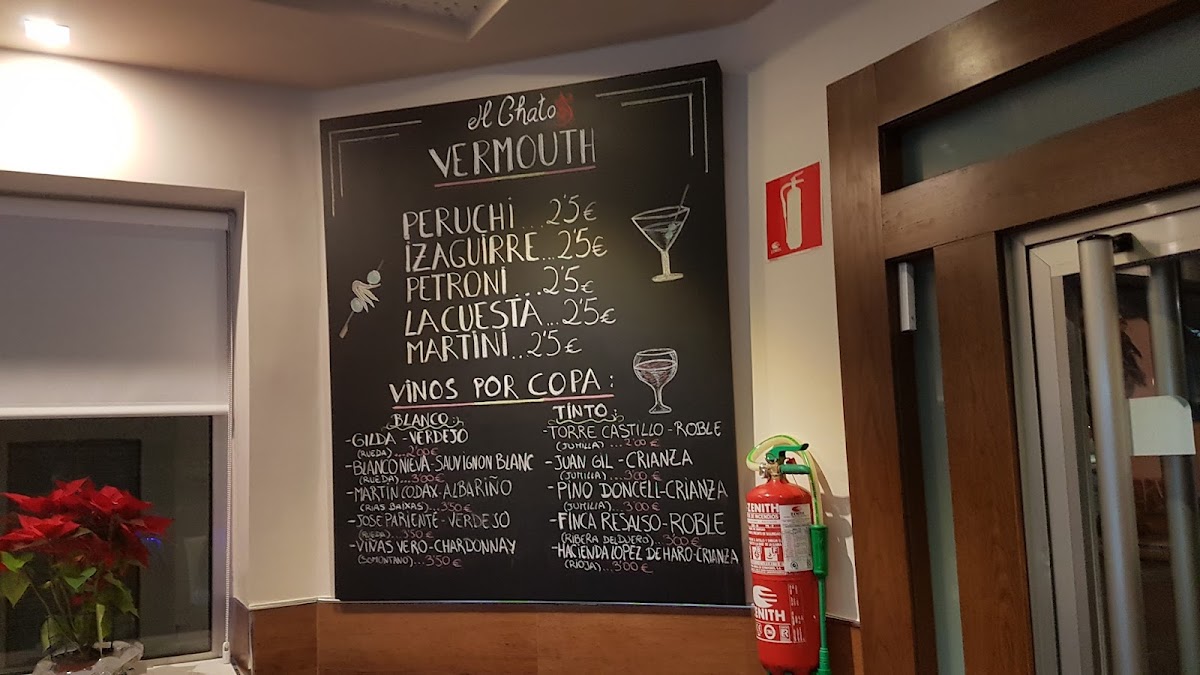 El Chato
VERMOUTH
PERUCHI...2'5€
IZAGUIRRE...2'5€
PETRONI...2'5€
LACUESTA...2'5€
MARTINI..2'5€
VINOS POR COPA:
BLANCO
-GILDA-VERDEJO
(RUEDA)...2'00€
-BLANCO NIEVA-SAUVIGNON BLANC
(RUEDA)...3'00€
-MARTIN CODAX-ALBARIÑO
(RIAS BAIXAS)...3'50€
-JOSE PARIENTE-VERDEJO
(RUEDA)...3'50€
-VIÑAS VERO-CHARDONNAY
(SOMONTANO)...3'50€
TINTO
-TORRE CASTILLO-ROBLE
(JUMILLA)...2'00€
-JUAN GIL-CRIANZA
(JUMILLA)...3'00€
-PINO DONCEL-CRIANZA
(JUMILIA)...3'00€
-FINCA RESALSO-ROBLE
(RIBERA DEL DUERO)...3'00€
-HACIENDA LOPEZ DE HARO-CRIANZA
(RIOJA)...3'00€
ZENITH
ZENITH